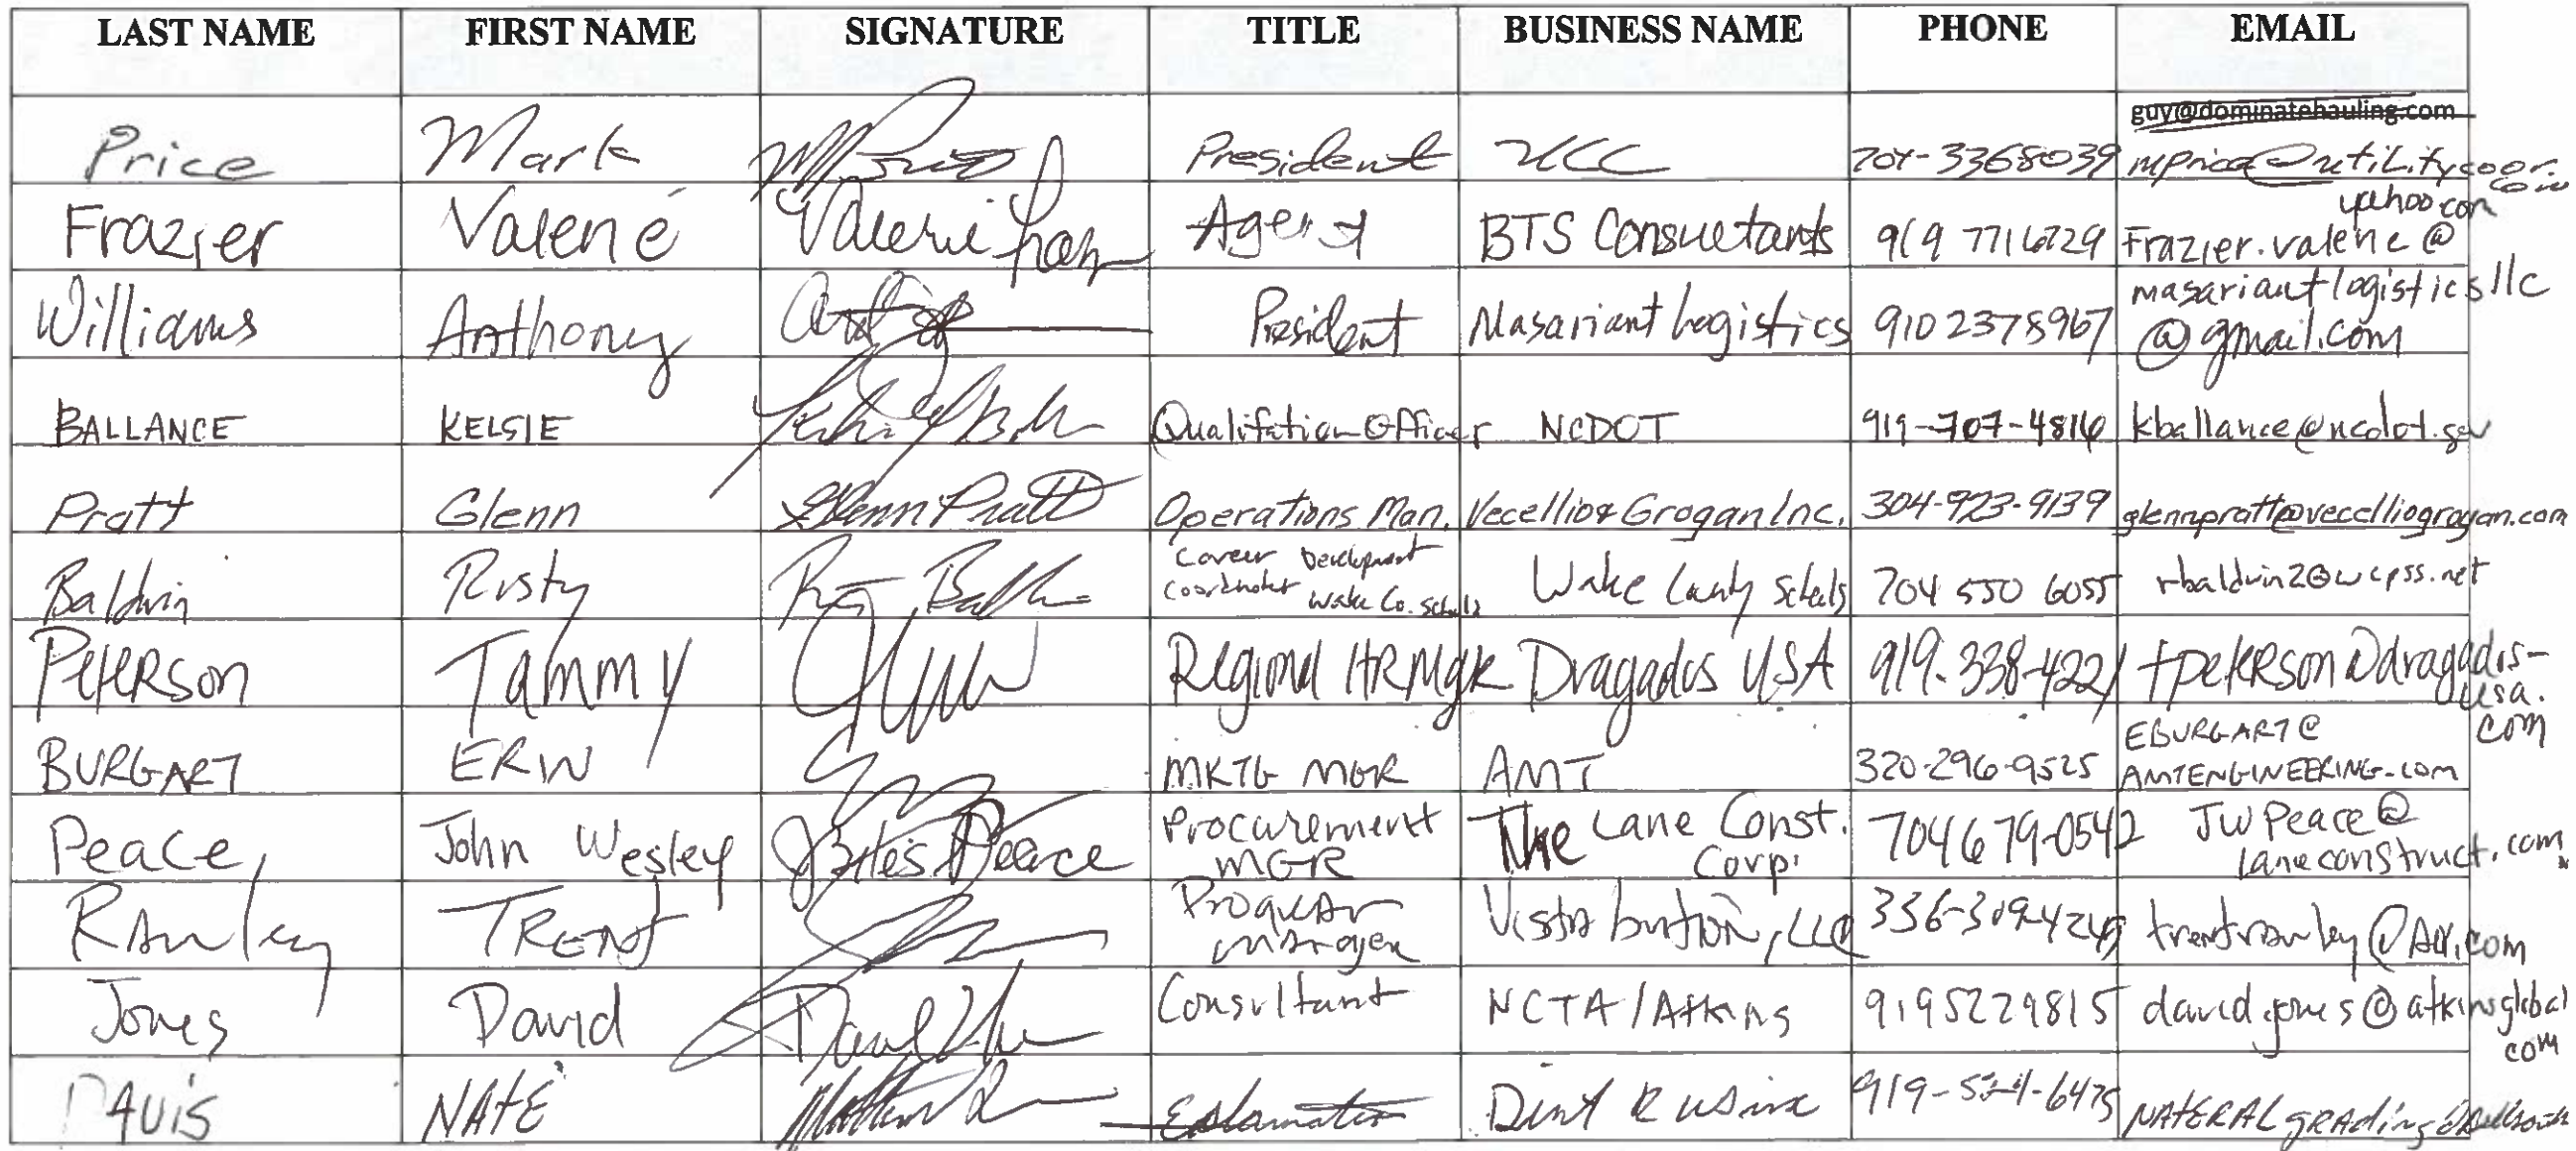 LAST NAME FIRST NAME SIGNATURE TITLE BUSINESS NAME PHONE EMAIL
guy@dominatehauling.com
Price Mark President UCC 704-3368039 mprice@utilitycoor.com
Frazier Valerie Valerie Agent BTS Consultants 919 7716729 Frazier.valerie@yahoo.com
Williams Anthony President Masariant Logistics 910 2378967 masariantlogisticsllc
@gmail.com
BALLANCE KELSIE Qualifation Officer NCDOT 919-707-4816 kballance@ncdot.gov
Pratt Glenn Glenn Pratt Operations Man. Vecellio & Grogan Inc. 304-923-9139 glennpratt@vecelliogrogan.com
Career Development
Baldwin Rusty Coordinator Wake Co. Schools Wake County Schools 704 550 6055 rbaldwin2@wcpss.net
Peterson Tammy Regional HR Mgr Dragados USA 919-338-4221 tpeterson@dragados-
usa.
com
BURGART ERIN MKTG MGR AMT 320-296-9525 EBURGART@
AMTENGINEERING.COM
Peace, John Wesley Peace Procurement MGR The Lane Const. Corp. 704 679-0542 JWPeace@
laneconstruct.com
Rawley TRENT Program Manager 336-309-4249 trentrawley@
Jones David David Consultant NCTA/Atkins 9195229815 david.jones@atkinsglobal
com
DAVIS NATE 919-524-6475 NATERALgrading